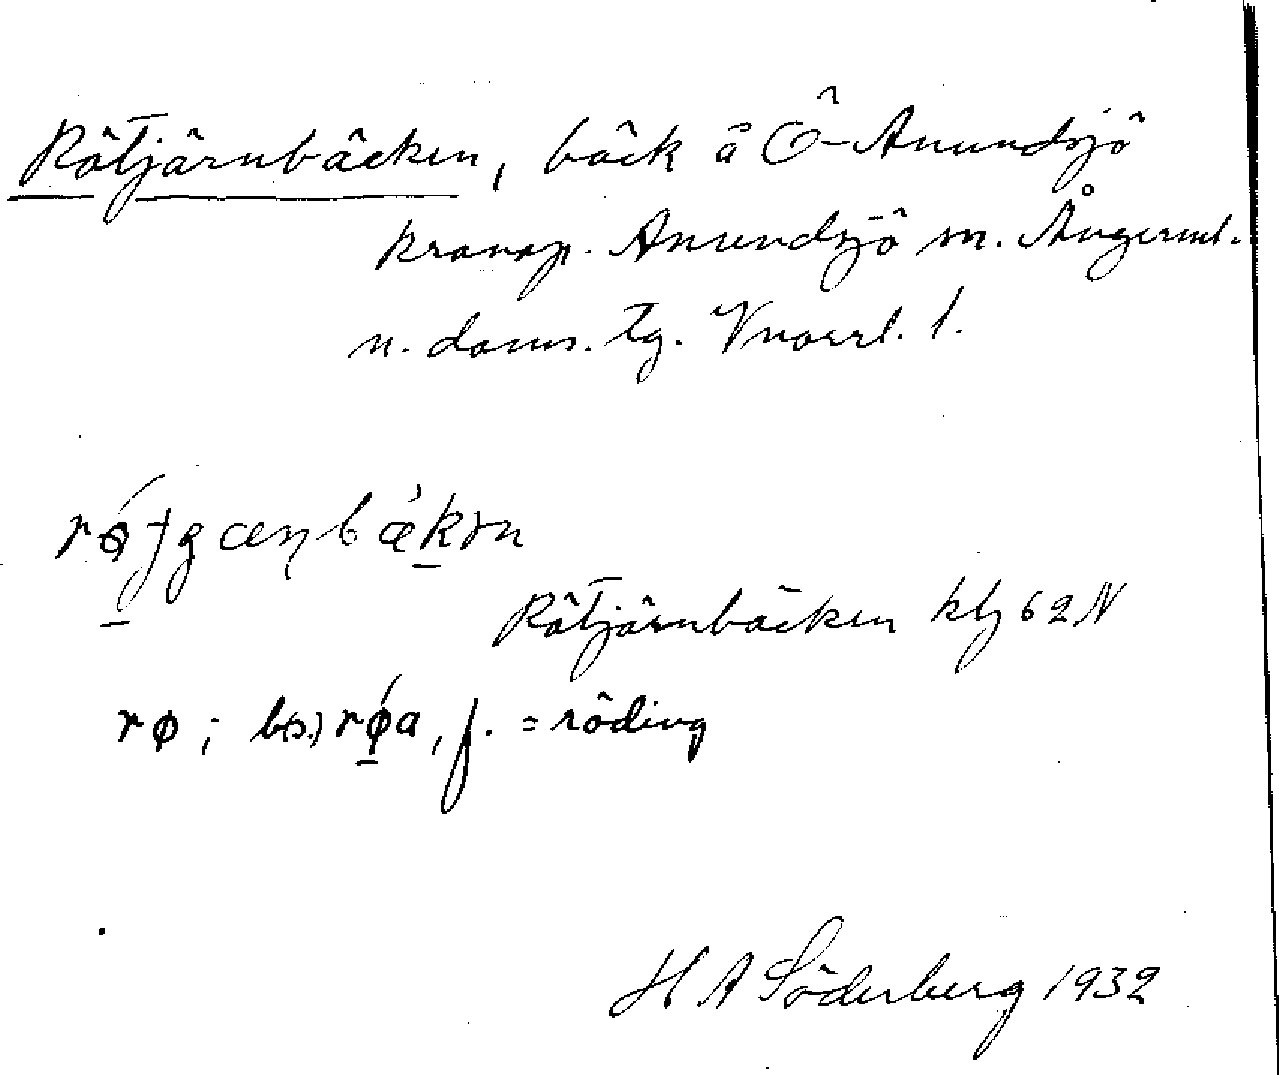 Rötjärnbäcken, bäck å Ö-Anundsjö
kronop. Anundsjö sn. Ångerml.
n. doms. tg. Vnorrl. l.
Rötjärnbäcken kbl 62 N
rø; b(s.) rǿa, f. = röding
H A Söderberg 1932